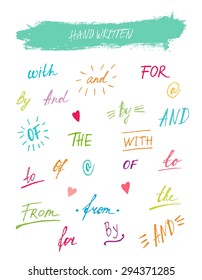 HANDWRITTEN
with and FOR
By And @
OF THE By AND
to of @ WITH OF to
From from the
for By AND
shutterstock.com · 294371285